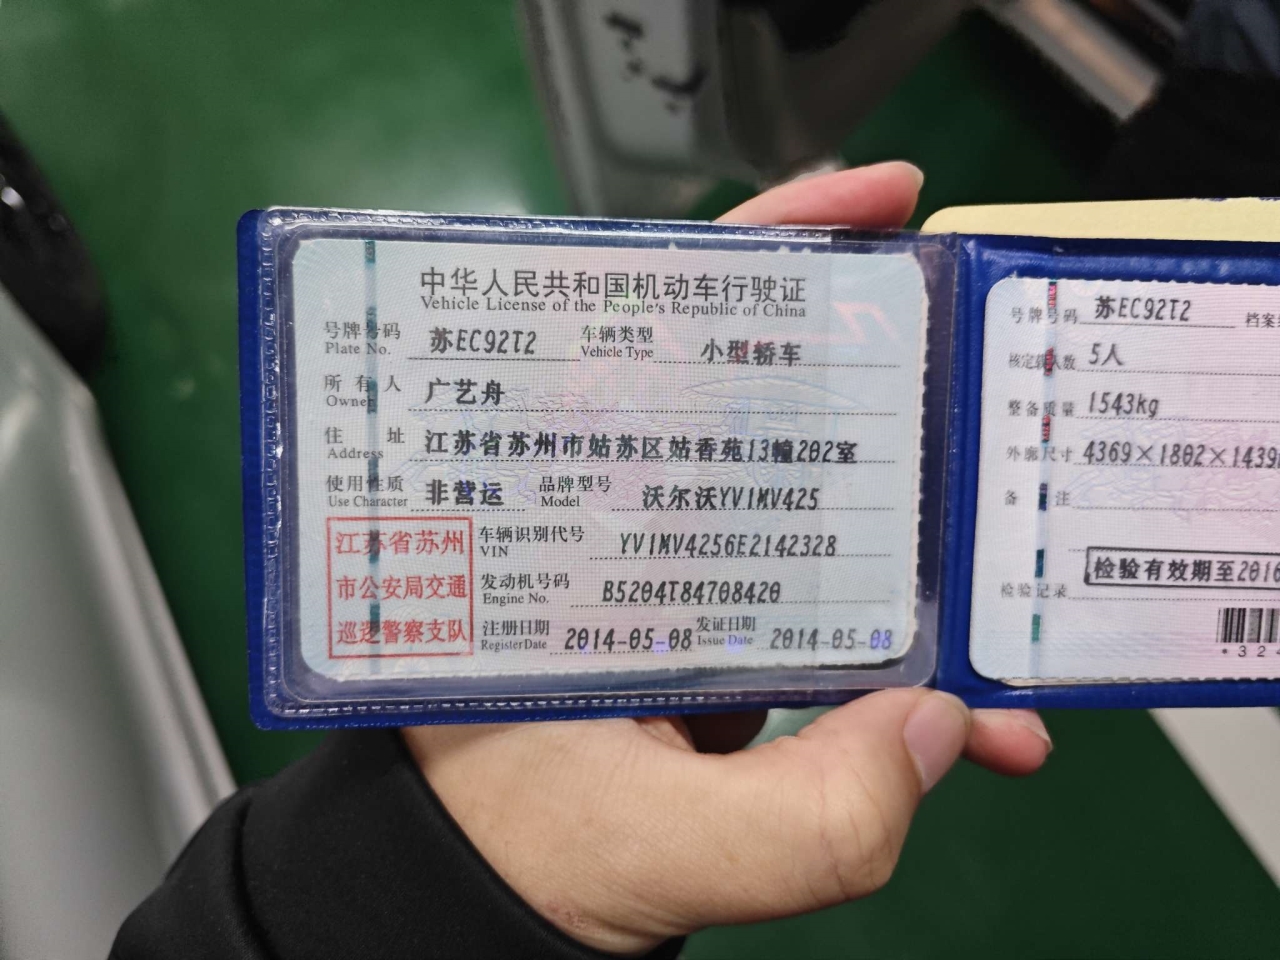 中华人民共和国机动车行驶证
Vehicle License of the People's Republic of China
号牌号码 苏EC92T2 车辆类型 小型轿车
Plate No. Vehicle Type
所有人 广艺舟
Owner
住址 江苏省苏州市姑苏区姑香苑13幢202室
Address
使用性质 非营运 品牌型号 沃尔沃YV1MV425
Use Character Model
江苏省苏州
市公安局交通
巡逻警察支队
车辆识别代号 YV1MV4256E2142328
VIN
发动机号码 B5204T84708420
Engine No.
注册日期 2014-05-08 发证日期 2014-05-08
Register Date Issue Date
号牌号码 苏EC92T2 档案
核定载人数 5人
整备质量 1543kg
外廓尺寸 4369×1802×1439
备注
检验记录 检验有效期至2016
*324